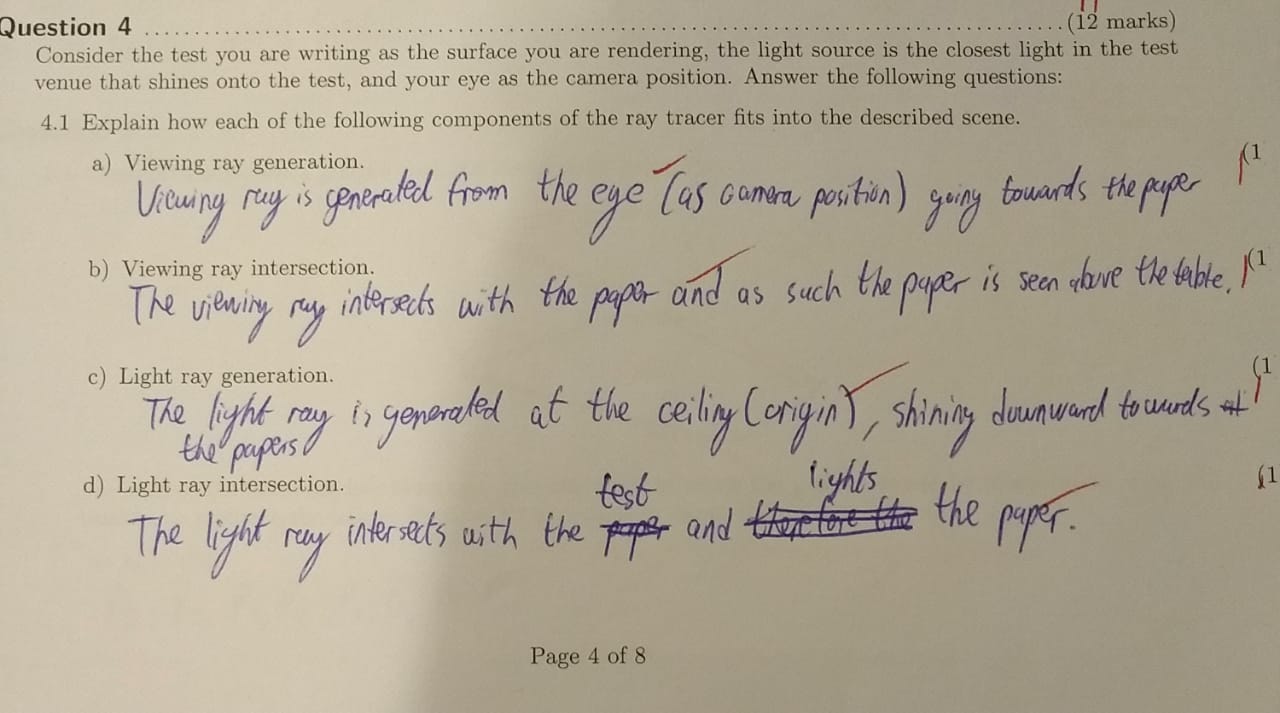 Question 4 ........................................................................ (12 marks)
Consider the test you are writing as the surface you are rendering, the light source is the closest light in the test
venue that shines onto the test, and your eye as the camera position. Answer the following questions:
4.1 Explain how each of the following components of the ray tracer fits into the described scene.
a) Viewing ray generation. (1
Viewing ray is generated from the eye (as camera position) going towards the paper
b) Viewing ray intersection. (1
The viewing ray intersects with the paper and as such the paper is seen above the table.
c) Light ray generation. (1
The light ray is generated at the ceiling (origin), shining downward towards
the papers
d) Light ray intersection. (1
test lights
The light ray intersects with the paper and therefore the the paper.
Page 4 of 8